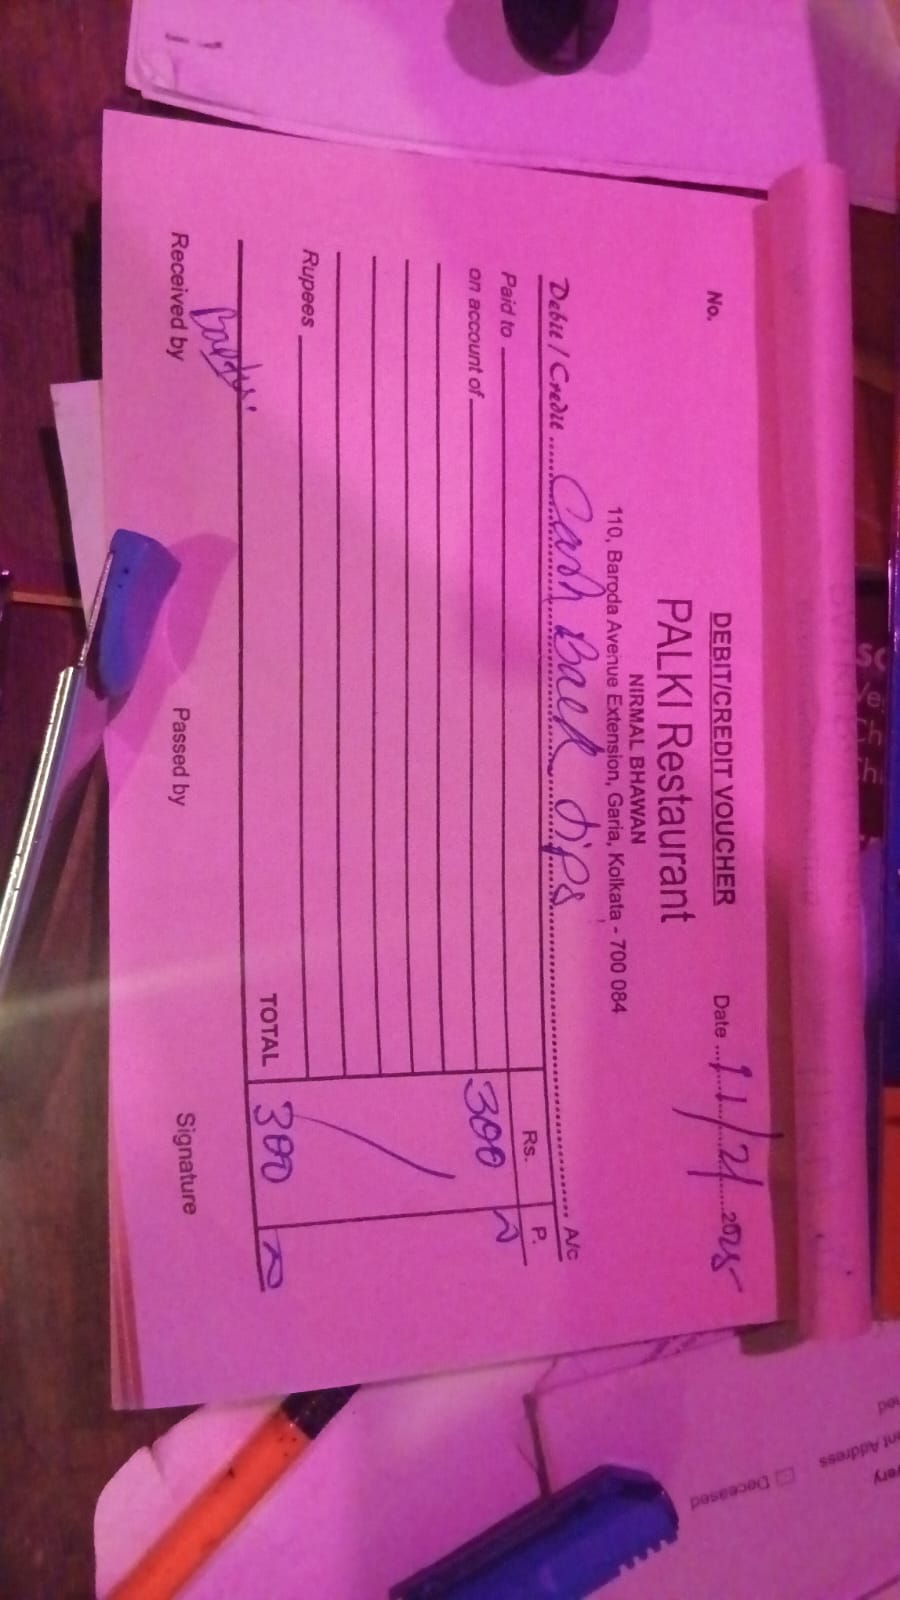 DEBIT/CREDIT VOUCHER
No.
Date 2025
PALKI Restaurant
NIRMAL BHAWAN
110, Baroda Avenue Extension, Garia, Kolkata - 700 084
Debit / Credit Cash Back Tips A/c
Rs. P.
Paid to
on account of 300
Rupees
TOTAL 300
Received by
Passed by
Signature
Deceased
Address